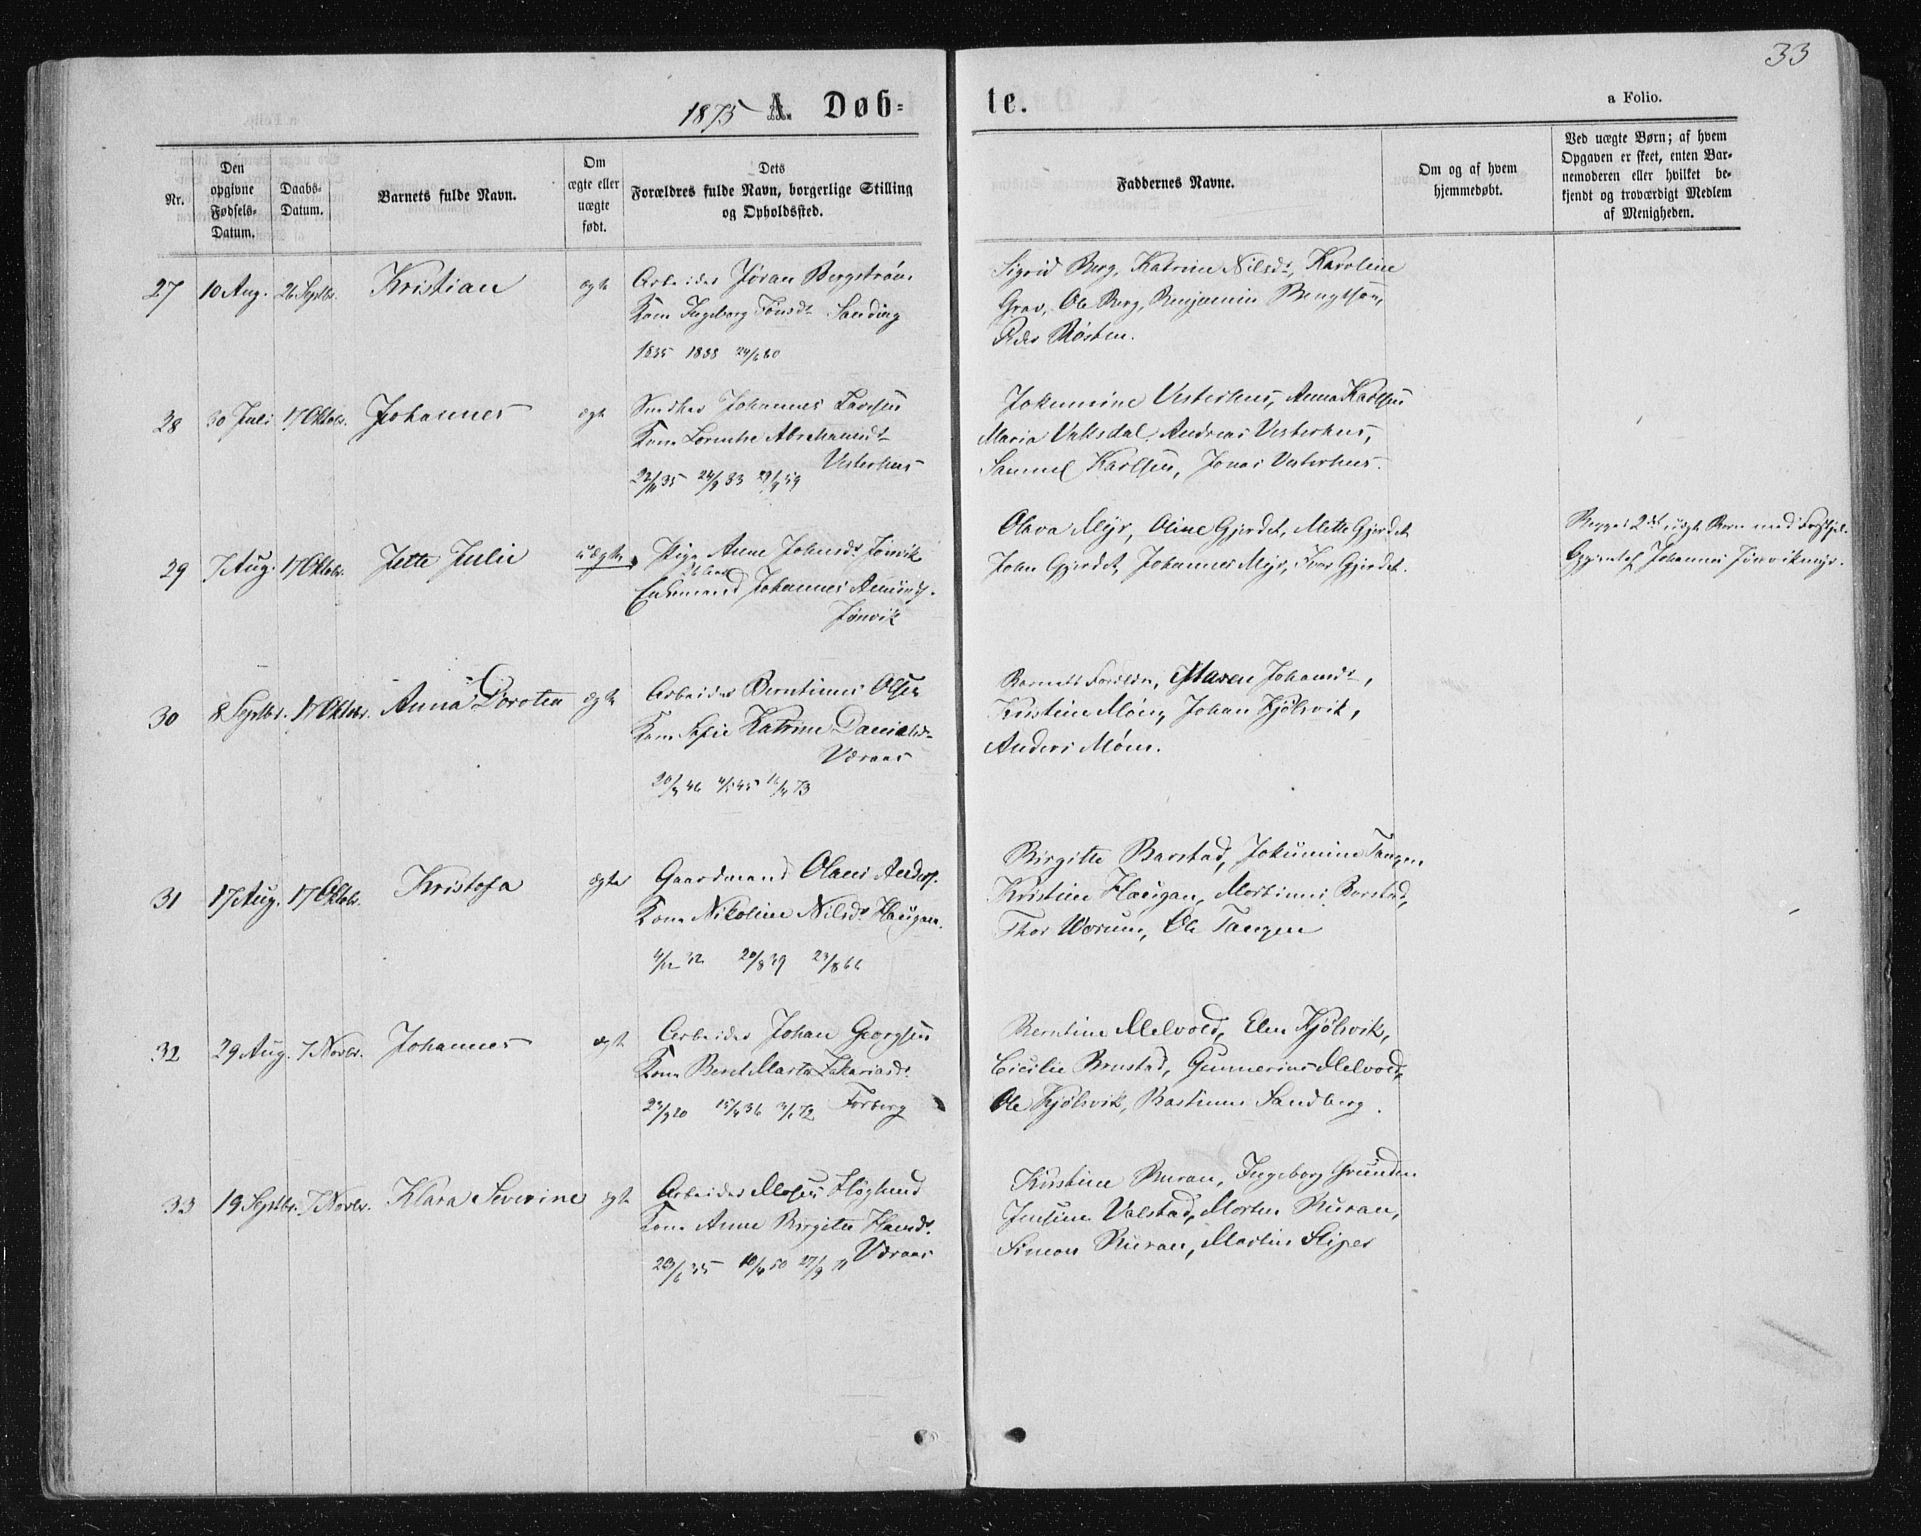 33
1875 A. Døb-te.
a Folio.
Nr.
Den opgivne Fødsels-Datum.
Daabs-Datum.
Barnets fulde Navn.
Om ægte eller uægte født.
Dets Forældres fulde Navn, borgerlige Stilling og Opholdssted.
Faddernes Navne.
Om og af hvem hjemmedøbt.
Ved uægte Børn; af hvem Opgaven er skeet, enten Barnemoderen eller hvilket bekjendt og troværdigt Medlem af Menigheden.
27 10 Aug. 26 Septbr. Kristian ægte Arbeider Jøran Bergstrøm
Kone Ingeborg Tønsdr Sanding
1835 1838 60
Sigrid Berg, Katrine Nilsdr, Karoline
Grav, Ole Berg, Benjamin Bengtsen,
Peder Røsten.
28 30 Juli 17 Oktobr. Johannes ægte Johannes
Kone Abrahamsdr
Vesterhus
22/11 35 24/9 33 29/9 59
Jokumine Vesterhus, Anna Karlsen
Maria Valisdal, Andreas Vesterhus,
Samuel Karlsen, Jonas Vesterhus.
29 7 Aug. 17 Oktobr. Jette Julie uægte Pige Anne Johnsdr Finvik
Enkemand Johannes
Finvik
Olava Myr, Oline Gjerdet, Mette Gjerdet
John Gjerdet, Johannes Myr, Iver Gjerdet.
Begges 2det uægte Barn med
Johannes
30 8 Septbr. 17 Oktobr. Anna Dorotea ægte Arbeider Berntinus Olsen
Kone Sofie Katrine Danielsdr
Væraas
20/3 46 45 73
Barnets Forældre, Maren Johansdr,
Kristine Møen, Johan Kjølsvik,
Anders Møen.
31 17 Aug. 17 Oktobr. Kristofa ægte Gaardmand Olaus Anders.
Kone Nikoline Nilsdr Haugan.
4/12 32 20/8 39 23/8 66
Birgitte Barstad, Jokumine Tangen
Kristine Haugan, Mortinus Barstad,
Thor Worum, Ole Tangen
32 29 Aug. 7 Novbr. Johannes ægte Arbeider Johan Georgsen
Kone Beret Marta Zakariasdr
23/9 20 15/4 36 3/1 72 Forberg
Berntine Melvold, Elen Kjølsvik,
Cicilie Brustad, Gunnerius Melvold,
Ole Kjølsvik, Bastinus Sandberg.
33 19 Septbr. 7 Novbr. Klara Severine ægte Arbeider Moses Høglund
Kone Anne Birgitte Hansdr.
23/6 35 10/4 50 27/9 71 Væraas
Kristine Buran, Ingeborg Grunden
Jensine Valstad, Morten Buran,
Simon Buran, Martin Stiper